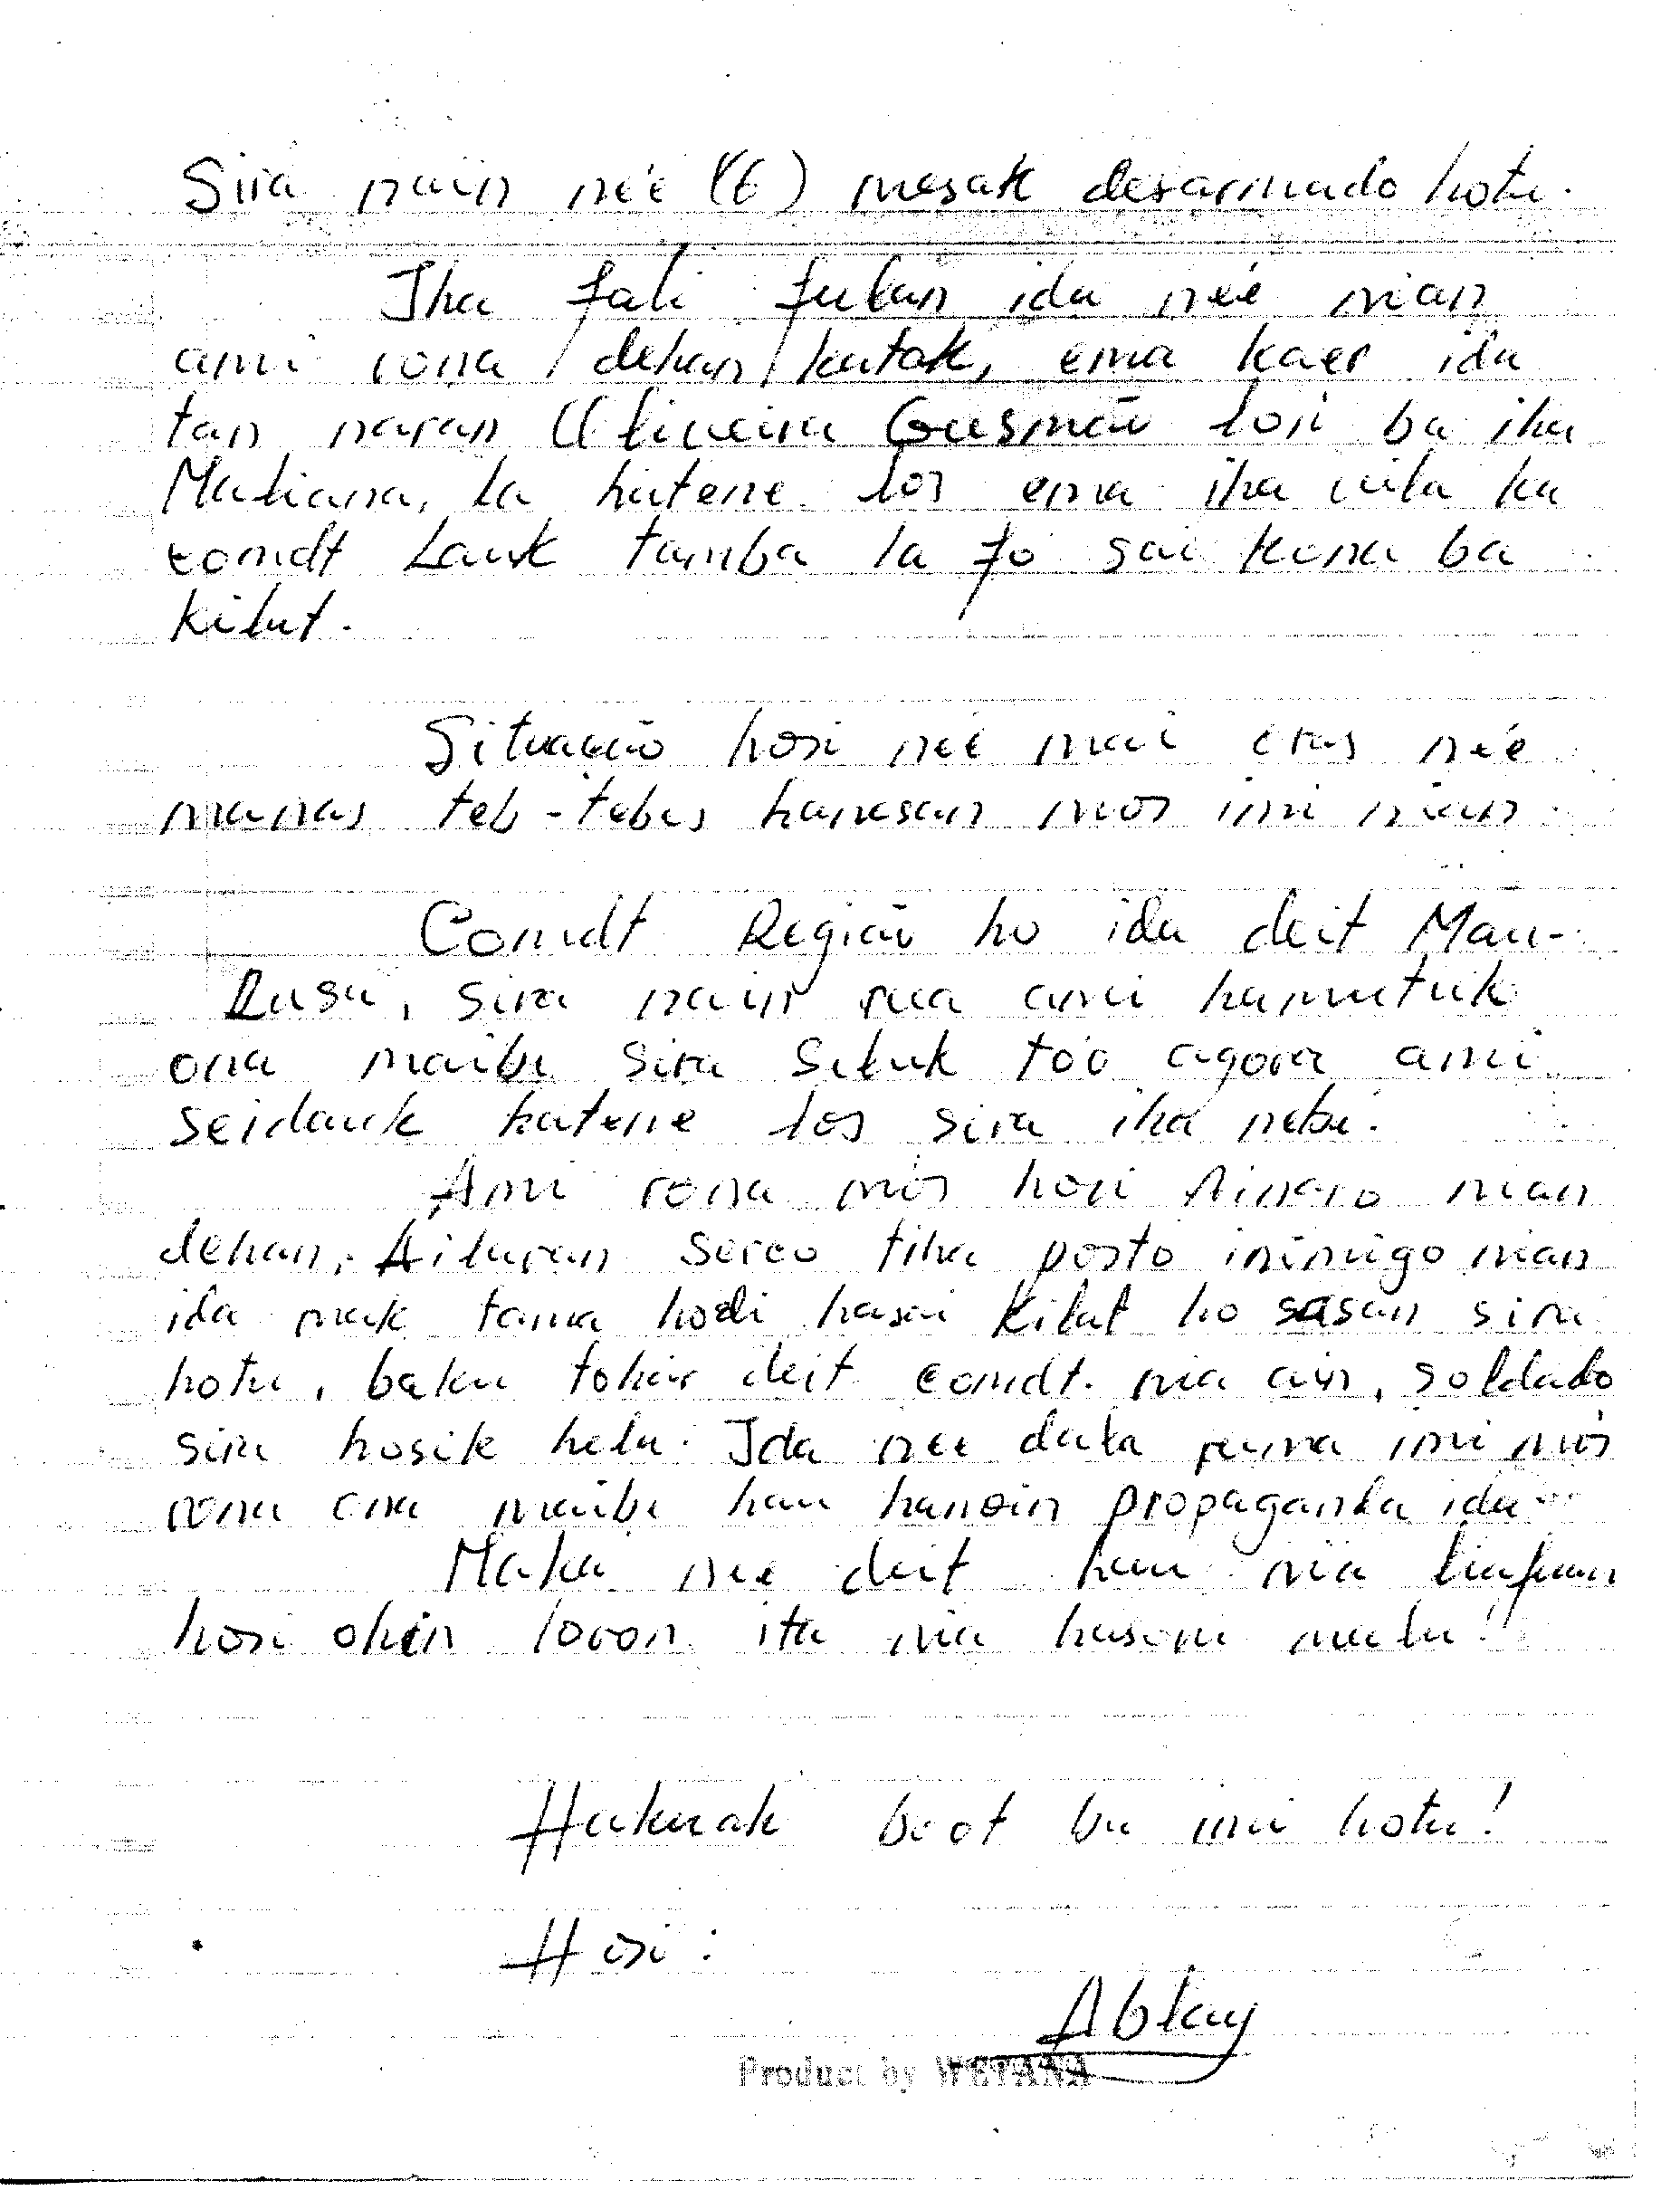 Sira nain neé (6) mesak desarmado hotu.
Iha fali fulan ida neé nian
ami rona dehan katak, ema kaer ida
tan naran Oliveira Gusmão lori ba iha
Maliana, la hatene los ema iha vila ka
comdt Lauk tamba la fó sai kona ba
kilat.
Situação hosi neé mai oras neé
manas teb-tebes hanesan mos imi nian.
Comdt Região ho ida deit Mau-
Rusa, sira nain rua ami hamutuk
ona maibe sira seluk tóo agora ami
seidauk hatene los sira iha nebé.
Ami rona mós hosi Ainaro nian
dehan, Aituran serco tiha posto inimigo nian
ida mak tama hodi hasai kilat ho sasan sira
hotu, baku tohar deit comdt. nia ain, soldado
sira husik hela. Ida neé dala ruma imi mós
rona ona maibe hau hanoin propaganda ida
Maka neé deit hau nia liafuan
hosi ohin loron ita nia hasoru malu!
Haknak boot ba imi hotu!
Hosi:
Ablay
Product by WETANA